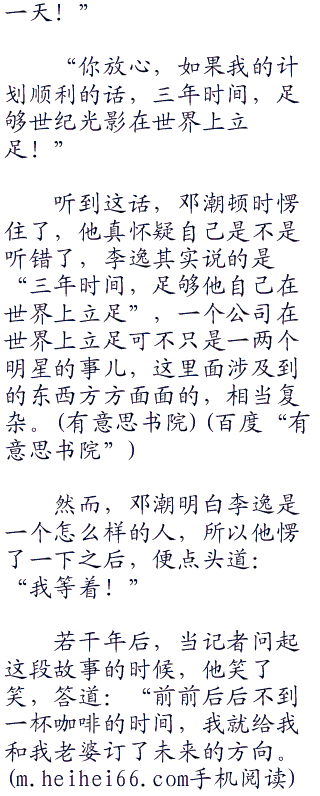 一天！”
“你放心，如果我的计
划顺利的话，三年时间，足
够世纪光影在世界上立
足！”
听到这话，邓潮顿时愣
住了，他真怀疑自己是不是
听错了，李逸其实说的是
“三年时间，足够他自己在
世界上立足”，一个公司在
世界上立足可不只是一两个
明星的事儿，这里面涉及到
的东西方方面面的，相当复
杂。(有意思书院)(百度“有
意思书院”)
然而，邓潮明白李逸是
一个怎么样的人，所以他愣
了一下之后，便点头道：
“我等着！”
若干年后，当记者问起
这段故事的时候，他笑了
笑，答道：“前前后后不到
一杯咖啡的时间，我就给我
和我老婆订了未来的方向。
(m.heihei66.com手机阅读)